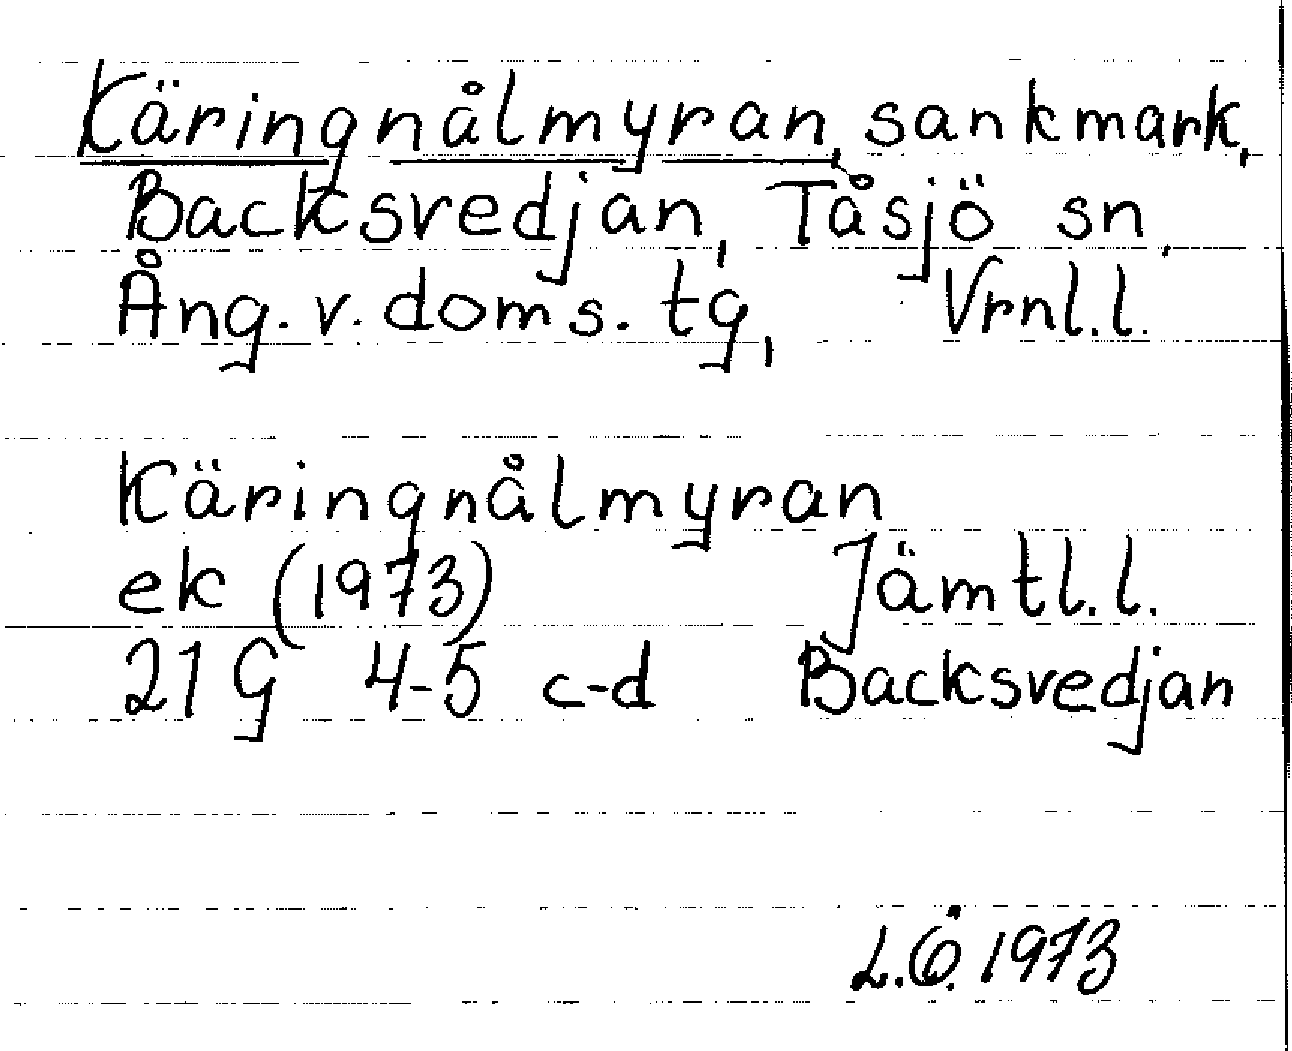 Käringnålmyran, sankmark,
Backsvedjan, Tåsjö sn,
Ång. v. doms. tg, Vrnl.l.
Käringnålmyran
ek (1973) Jämtl.l.
21G 4-5 c-d Backsvedjan
L.Ö. 1973